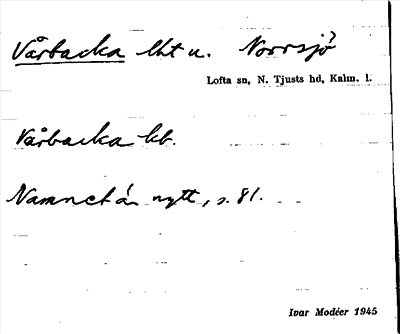 Vårbacka lht u. Norrsjö
Lofta sn, N. Tjusts hd, Kalm. l.
Vårbacka kb.
Namnet är nytt, s. 81.
Ivar Modéer 1945